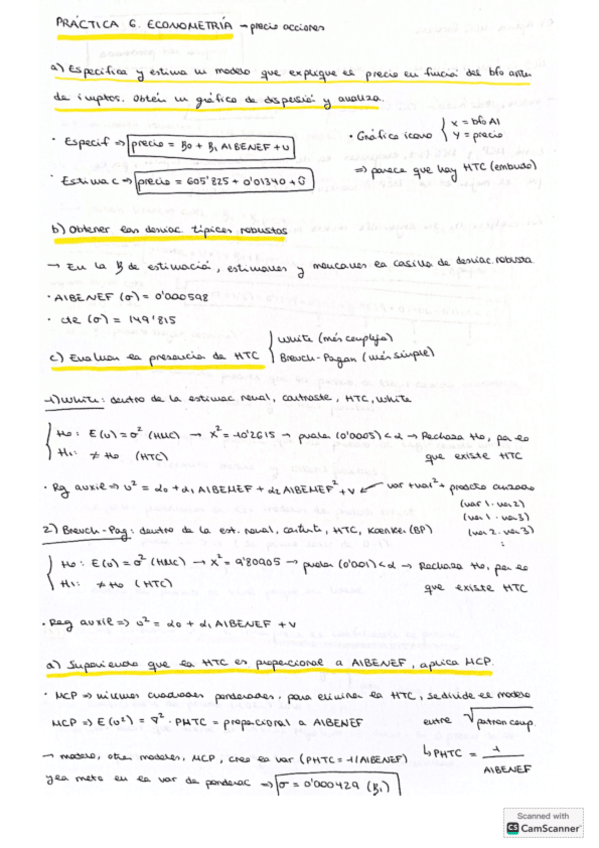 PRÁCTICA 6. ECONOMETRÍA → precio acciones
a) Especifica y estima un modelo que explique el precio en función del bfo antes
de imptos. Obtén un gráfico de dispersión y analiza.
• Especif ⇒ precio = B0 + B1 AIBENEF + u
• Gráfico icono { x = bfo AI
Y = precio
• Estimac ⇒ precio = 605'825 + 0'01340 + û
⇒ parece que hay HTC (embudo)
b) Obtener las desviac típicas robustas
→ En la B de estimación, estimamos y marcamos la casilla de desviac. robusta
• AIBENEF (σ) = 0'000598
• cte (σ) = 149'815
c) Evaluar la presencia de HTC { White (más complejo)
Breuch-Pagan (más simple)
1) White: dentro de la estimac normal, contraste, HTC, White
{ H0: E(u) = σ² (HMC) → X² = 10'2615 → pvalor (0'0005) < α → Rechaza H0, por lo
H1: ≠ H0 (HTC) que existe HTC
• Rg auxil ⇒ u² = α0 + α1 AIBENEF + α2 AIBENEF² + v ← var + var² + producto cruzado
(var 1 · var 2)
(var 1 · var 3)
(var 2 · var 3)
:
2) Breuch-Pag: dentro de la est. normal, contraste, HTC, Koenker (BP)
{ H0: E(u) = σ² (HMC) → X² = 9'80905 → pvalor (0'001) < α → Rechaza H0, por lo
H1: ≠ H0 (HTC) que existe HTC
• Reg auxil ⇒ u² = α0 + α1 AIBENEF + v
a) Suponiendo que la HTC es proporcional a AIBENEF, aplica MCP.
• MCP ⇒ mínimos cuadrados ponderados. para eliminar la HTC, se divide el modelo
MCP ⇒ E(u²) = σ² · PHTC = proporcional a AIBENEF entre √patron comp.
→ modelo, otros modelos, MCP, creo la var (PHTC = 1/AIBENEF) ↳ PHTC = 1/AIBENEF
y la meto en la var de ponderac ⇒ σ = 0'000429 (B1)
Scanned with
CS CamScanner